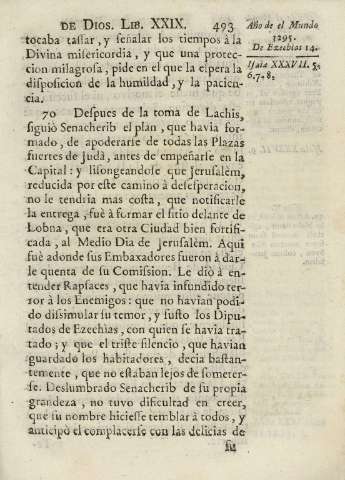 DE DIOS. LIB. XXIX. 493
tocaba tassar, y señalar los tiempos à la
Divina misericordia, y que una protec-
cion milagrosa, pide en el que la espera la
disposicion de la humildad, y la pacien-
cia.
70 Despues de la toma de Lachis,
siguiò Senacherib el plan, que havia for-
mado, de apoderarse de todas las Plazas
fuertes de Judà, antes de empeñarse en la
Capital: y lisongeandose que Jerusalèm,
reducida por este camino à desesperacion,
no le tendria mas costa, que notificarle
la entrega, fuè à formar el sitio delante de
Lobna, que era otra Ciudad bien fortifi-
cada, al Medio Dia de Jerusalèm. Aqui
fuè adonde sus Embaxadores fueron à dar-
le quenta de su Comission. Le diò à en-
tender Rapsaces, que havia infundido ter-
ror à los Enemigos: que no havian podi-
do dissimular su temor, y susto los Dipu-
tados de Ezechias, con quien se havia tra-
tado; y que el triste silencio, que havian
guardado los habitadores, decia bastan-
temente, que no estaban lejos de someter-
se. Deslumbrado Senacherib de su propia
grandeza, no tuvo dificultad en creer,
que su nombre hiciesse temblar à todos, y
anticipò el complacerse con las delicias de
su
Año de el Mundo
3295.
De Ezechias 14.
Isaia XXXVII. 5.
6. 7. 8.